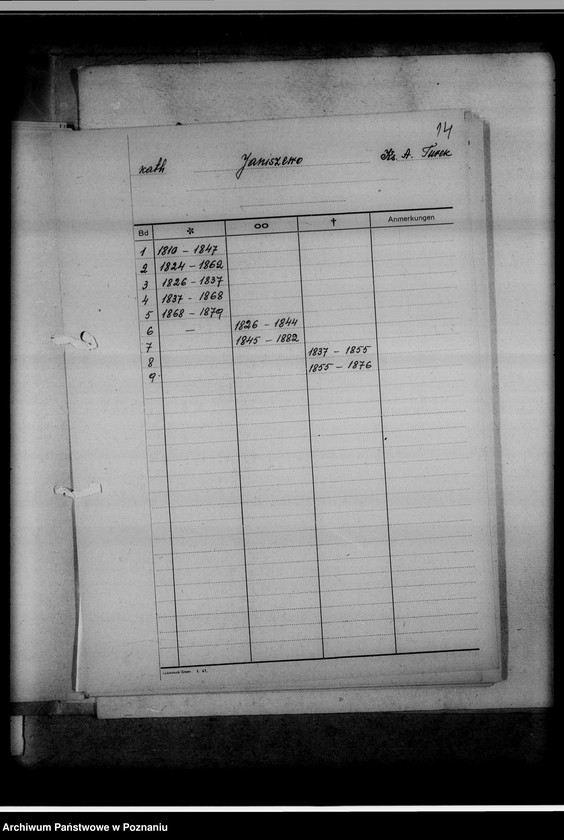 14
kath Janiszewo Krs. A. Turek
Bd * ∞ † Anmerkungen
1 1810 - 1847
2 1824 - 1862
3 1826 - 1837
4 1837 - 1868
5 1868 - 1879
6 — 1826 - 1844
7 1845 - 1882
8 1837 - 1855
9. 1855 - 1876
Archiwum Państwowe w Poznaniu